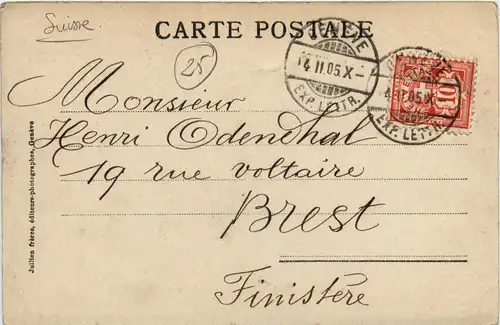 Suisse
CARTE POSTALE
25
GENÈVE
14.II.05.X-
EXP. LETTR.
EXP. LETTR.
10
Monsieur
Henri Odendhal
19 rue voltaire
Brest
Finistère
Jullien frères, éditeurs-photographes, Genève